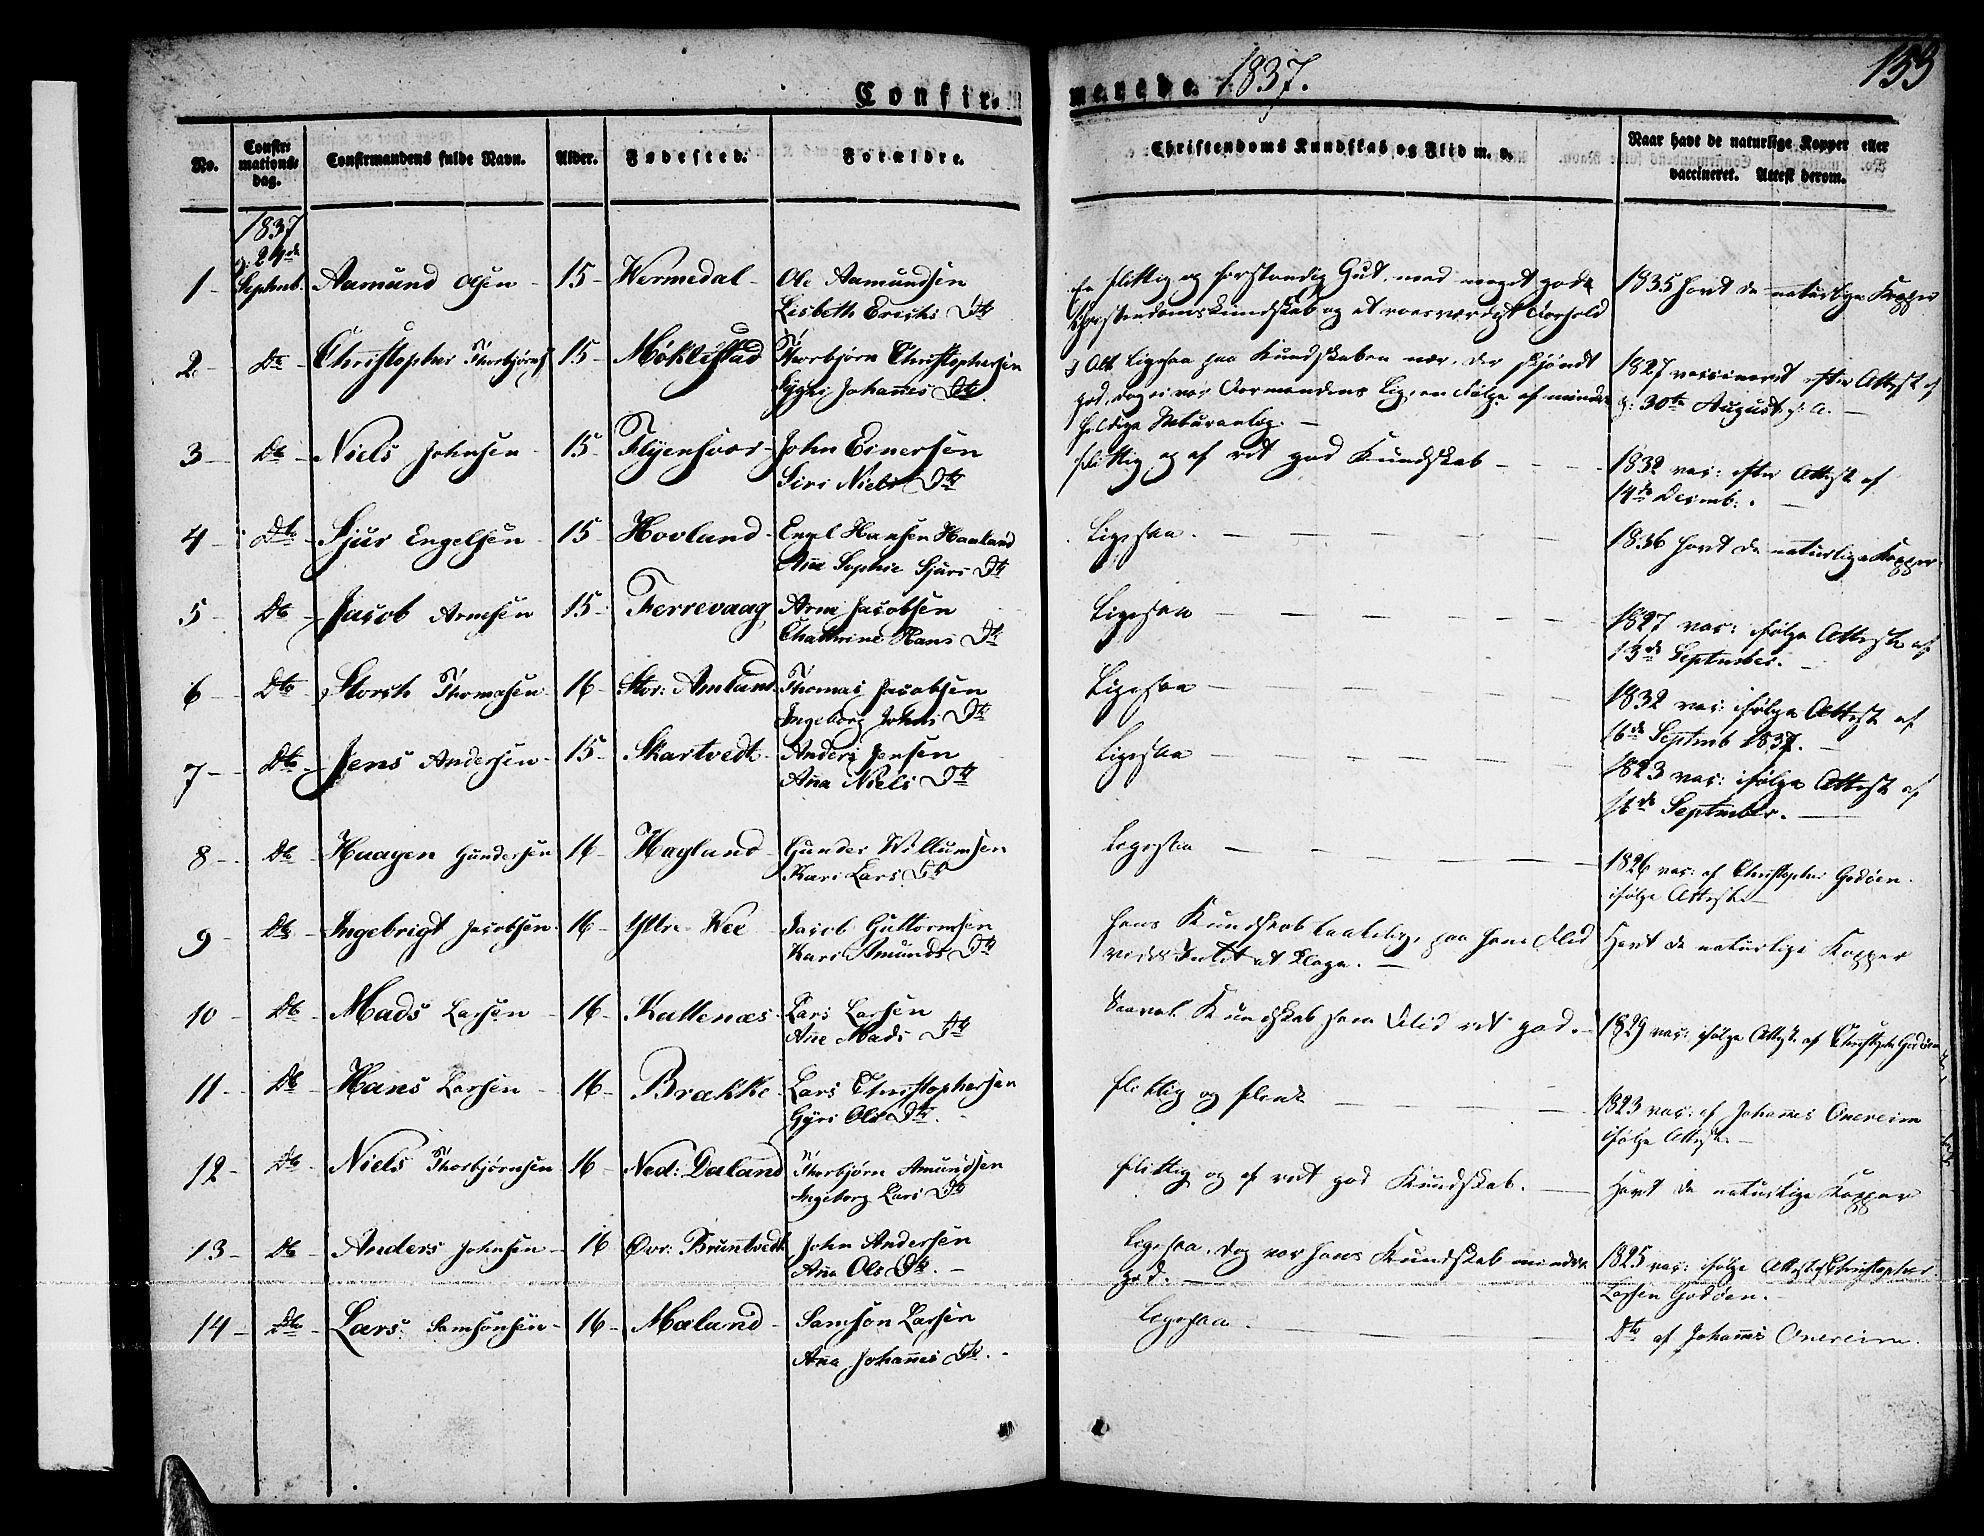 Confir= marede. 1837.
133
No.
Confir=
mations=
dag.
Confirmandens fulde Navn.
Alder.
Fødested.
Forældre.
Christendoms Kundskab og Flid m. v.
Naar havt de naturlige Kopper eller
vaccineret. Attest derom.
1837
24de
Septemb.
1 - Aamund Olsen - 15 - Wermedal - Ole Aamundsen
Lisbeth Erichs Dtr
En flittig og forstandig Gut med meget gode
Christendomskundskab og et roesværdigt Forhold
1835 havt de naturlige Kopper
2 - Do - Christopher Thorbjørns 15 - Møklestad Thorbjørn Christophersen
Sygni Johannes Dtr
I Alt Ligesaa paa Kundskaben nær, der skjøndt
god, dog ei var Formandens Lig, en Følge af mindre
heldige Naturanlæg. -
1827 vaccineret efter Attest af
30te August
3 - Do - Niels Johnsen - 15 - John Einersen
Siri Niels Dtr
flittig og af ret god Kundskab
1832 vac: efter Attest af
14de Decemb:
4 - Do - Sjur Engelsen 15 - Hovland - Engel Hansen Haaland
Ane Sophie Sjurs Dtr
Ligesaa.
1836 havt de naturlige Kopper
5 - Do - Jacob Arnesen 15 - Ferrevaag Arne Jacobsen
Chathrine Hans Dtr
Ligesaa
1827 vac: ifølge Attest af
13de September.
6 - Do - Storch Thomasen 16 - Stor: Amland Thomas Jacobsen
Ingeborg Johns Dtr
Ligesaa
1832 vac: ifølge Attest af
16de Septmb 1837.
7 - Do - Jens Andersen - 15 - Skartvedt - Anders Jensen
Ana Niels Dtr
Ligesaa
1823 vac: ifølge Attest af
16de September.
8 - Do - Haagen Gundersen 16 - Hagland - Gunder Willumsen
Kari Lars Dtr
Ligesaa
1826 vac: af Christopher Godøen
ifølge Attest.
9 - Do - Ingebrigt Jacobsen 16 - Yttre Wee Jacob Guttormsen
Kari Amunds Dtr
Hans Kundskab taalelig, paa hans Flid
vides Intet at klage. -
Havt de naturlige Kopper
10 - Do - Mads Larsen - 16 - Kallenæs - Lars Larsen
Ane Mads Dtr
Saavel Kundskab som Flid ret god. -
1829 vac: ifølge Attest af Christoph Godøen
11 - Do - Hans Larsen - 16 - Brække Lars Christophersen
Gyri Ols Dtr. -
flittig og flink
1823 vac: af Johannes Onereim
ifølge Attest. -
12 - Do - Niels Thorbjørnsen 16 - Ned: Daland Thorbjørn Amundsen
Ingeborg Lars Dtr
flittig og af ret god Kundskab. -
Havt de naturlige Kopper
13 - Do - Anders Johnsen - 16 Øvr: Bruntvedt John Andersen
Ana Ols Dtr. -
Ligesaa, dog var hans Kundskab mindre
god. -
1825 vac: ifølge Attest af Christopher
Larsen Godøen. -
14 - Do - Lars Samsonsen - 16 - Maland - Samson Larsen
Ana Johannes Dtr. -
Ligesaa.
Do af Johannes Onereim.